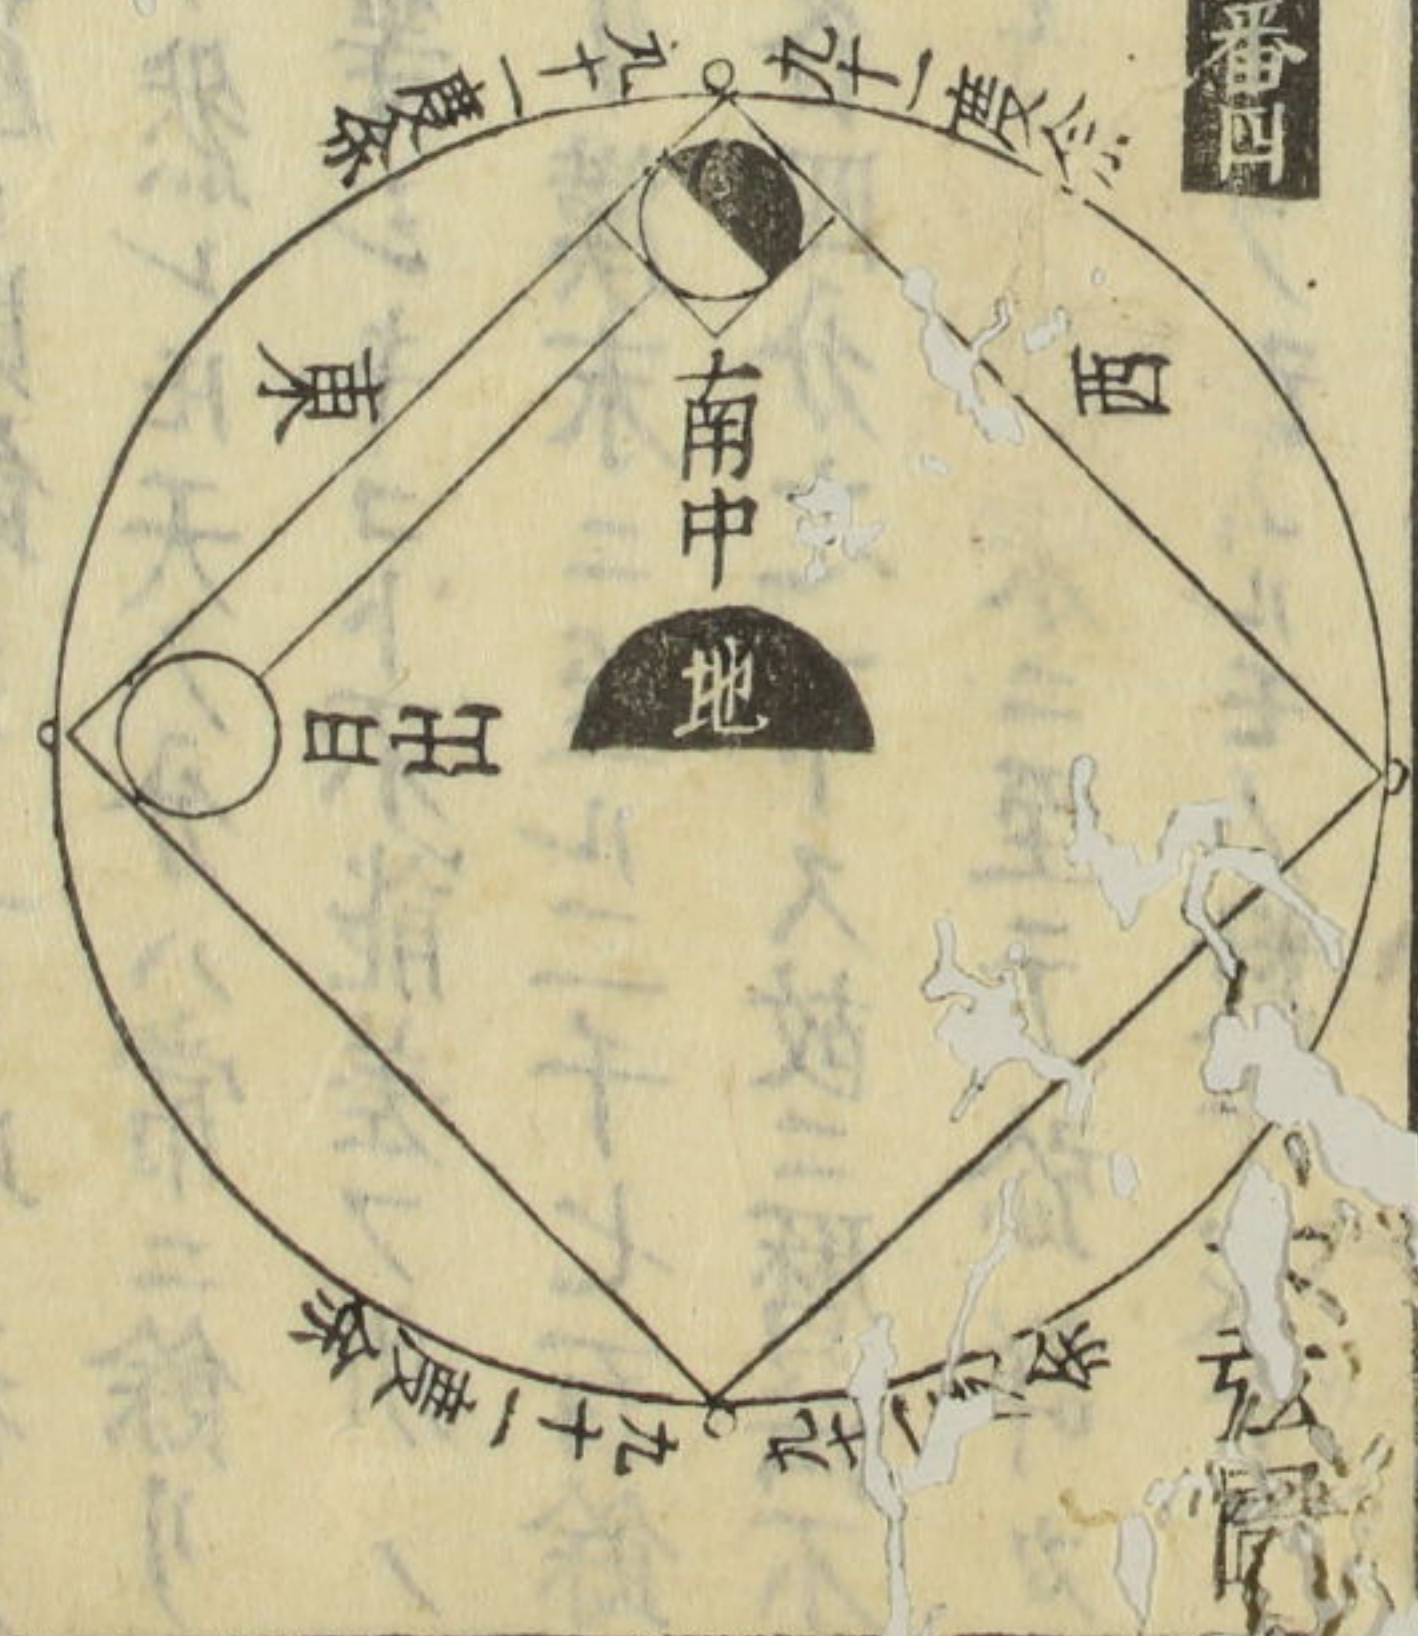 番四
弦圖
九十一度余
九十一度余
東
西
南中
地
日出
九十一度余
九十一度余